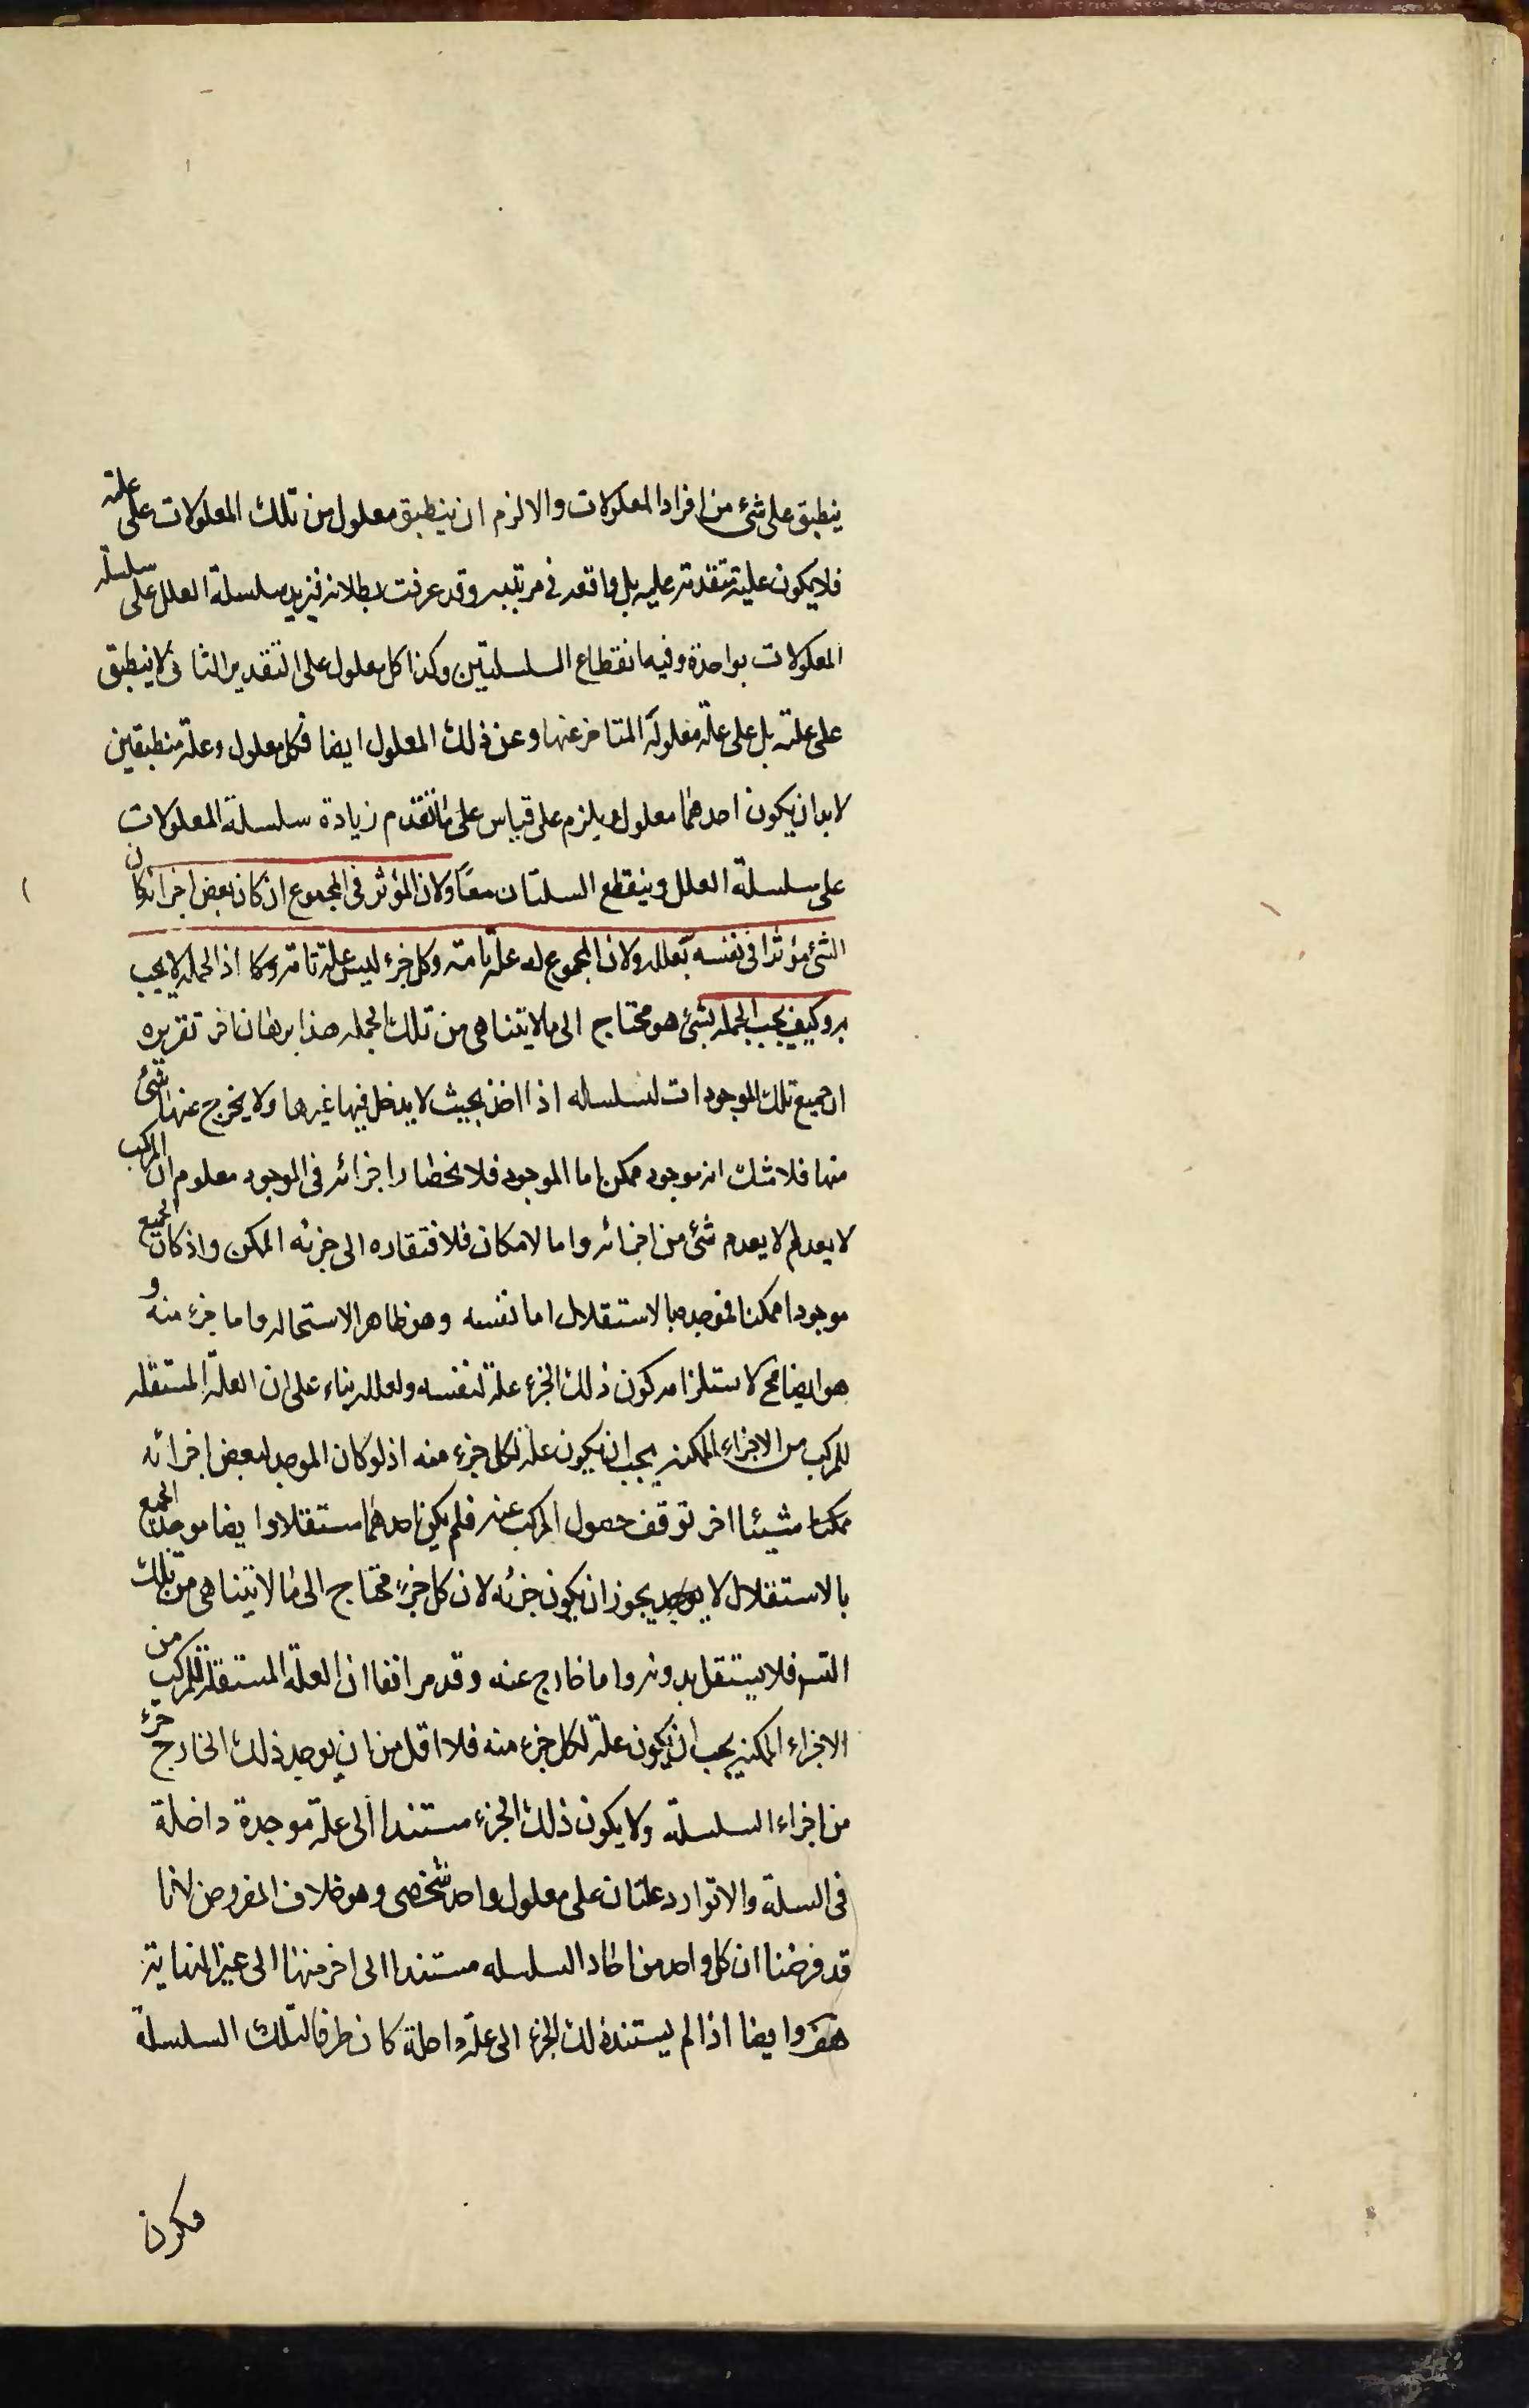 ينطبق على شئ من افراد المعلولات والا لزم ان ينطبق معلول من تلك المعلولات على علته
فلا يكون علية متقدمة عليه بل واقعه فى مرتبته وقد عرفت بطلانه فيزيد سلسلة العلل على سلسله
المعلولات بواحدة وفيه انقطاع السلسلتين وكذا كل معلول على التقدير الثانى لا ينطبق
على علته بل على علة معلوله المتاخر عنها وعن ذلك المعلول ايضا فكل معلول وعلة منطبقين
لابد ان يكون احدهما معلول ويلزم على قياس على ما تقدم زيادة سلسلة المعلولات
على سلسلة العلل وينقطع السلتان معًا ولان المؤثر فى المجموع ان كان بعض اجزائه كان
الشئ مؤثرا فى نفسه تعلله ولان المجموع له علة تامة وكل جزء ليس علة تامة وكا اذ الجمله لا يجب
به وكيف يجب الجمله بشئ هو محتاج الى ما لا يتناهى من تلك الجمله هذا برهان اخر تقريره
ان جميع تلك الموجودات لسلساله اذا اخذ بحيث لا يدخل فيها غيرها ولا يخرج عنها شئ
منها فلا شك انه موجود ممكن اما الموجود فلانحطار اجزائه فى الموجود معلوم ان المركب
لا يعدلم لا يعدم شئ من اجزائه واما لامكان فلافتقاره الى جزئه الممكن واذ كان الجميع
موجودا ممكنا فموجده بالاستقلال اما نفسه وهو ظاهر الاستحاله واما جزء منه و
هو ايضا مح لاستلزامه كون ذلك الجزء علة لنفسه ولعلله بناء على ان العلة المستقله
للمركب من الاجزاء الممكنه يجب ان يكون علة لكل جزء منه اذ لو كان الموجد لبعض اجزائه
ممكنا شيئا اخر توقف حصول المركب عنه فلم يكن احدهما مستقلا وايضا موجد الجميع
بالاستقلال لا يجوز ان يكون جزئه لان كل جزء محتاج الى ما لا يتناهى من تلك
التسـ فلا يستقل بدونه واما خارج عنه وقد مر انفا ان العلة المستقلة للمركب من
الاجزاء الممكنه يجب ان يكون علة لكل جزء منه فلا اقل من ان يوجد ذلك الخارج جزء
من اجزاء السلسلة ولا يكون ذلك الجزء مستندا الى علة موجدة داخلة
فى السلة والا توارد علتان على معلول واحد شخصى وهو خلاف المفروض لانا
قد فرضنا ان كل واحد من احاد السلسله مستندا الى اخر منها الى غير النهاية
هف وايضا اذا لم يستند ذلك الجزء الى علة داخلة كان طرفا لتلك السلسلة
فكون